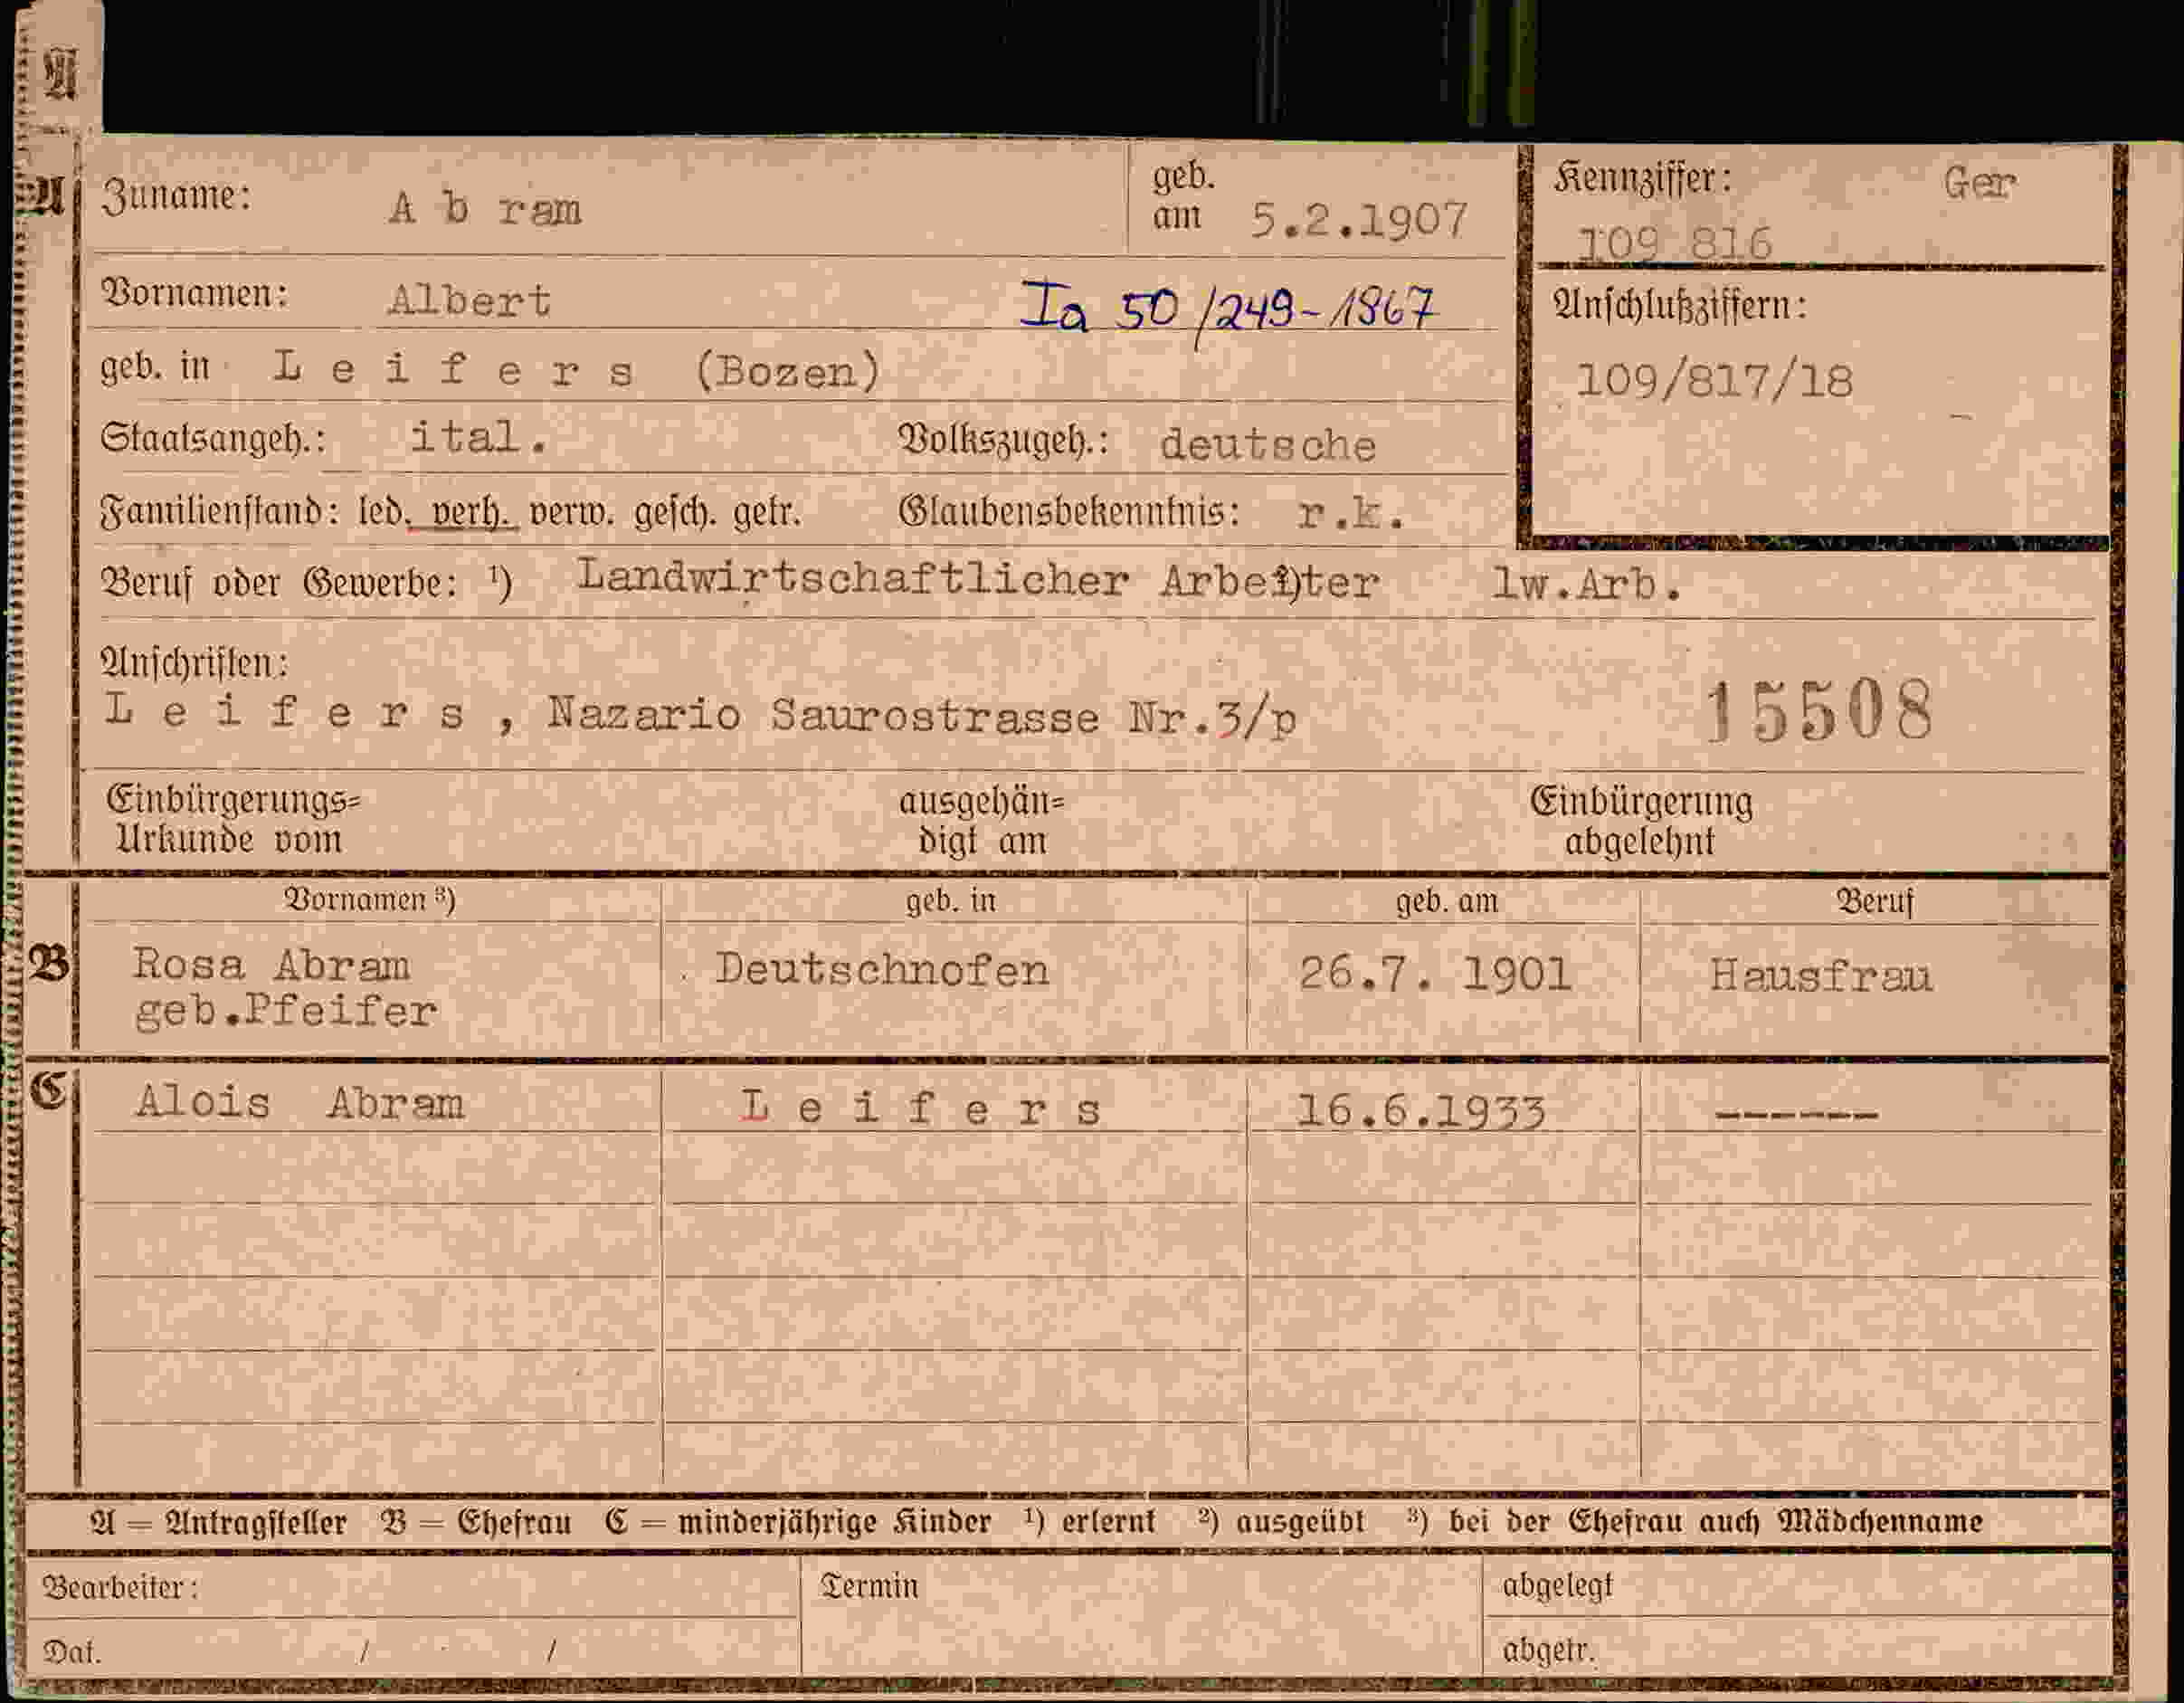 A
A Zuname: A b ram geb. am 5.2.1907 Kennziffer: Ger
109 816
Vornamen: Albert Ia 50/249-1967 Anschlußziffern:
geb. in L e i f e r s (Bozen) 109/817/18
Staatsangeh.: ital. Volkszugeh.: deutsche
Familienstand: led. verh. verw. gesch. getr. Glaubensbekenntnis: r.k.
Beruf oder Gewerbe: ¹) Landwirtschaftlicher Arbeiter lw.Arb.
Anschriften:
L e i f e r s , Nazario Saurostrasse Nr.3/p 15508
Einbürgerungs= ausgehän= Einbürgerung
Urkunde vom digt am abgelehnt
Vornamen ³) geb. in geb. am Beruf
B Rosa Abram Deutschnofen 26.7. 1901 Hausfrau
geb.Pfeifer
C Alois Abram L e i f e r s 16.6.1933 ------
A = Antragsteller B = Ehefrau C = minderjährige Kinder ¹) erlernt ²) ausgeübt ³) bei der Ehefrau auch Mädchenname
Bearbeiter: Termin abgelegt
Dat. / / abgetr.